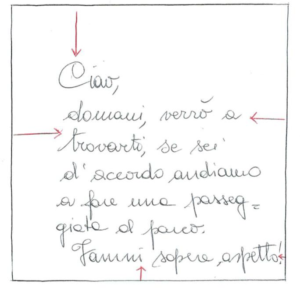 Ciao,
domani, verrò a
trovarti, se sei
d'accordo andiamo
a fare una passeg=
giata al parco.
Fammi sapere, aspetto!